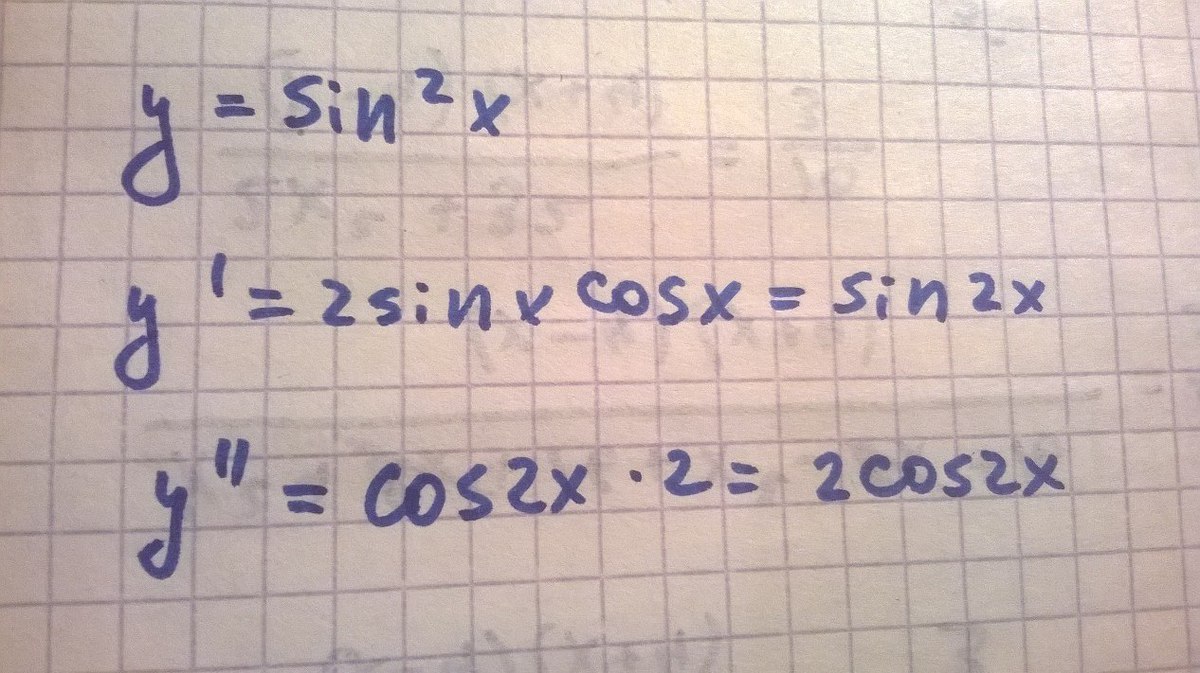 y = sin²x
y' = 2sinx cosx = sin2x
y'' = cos2x · 2 = 2cos2x